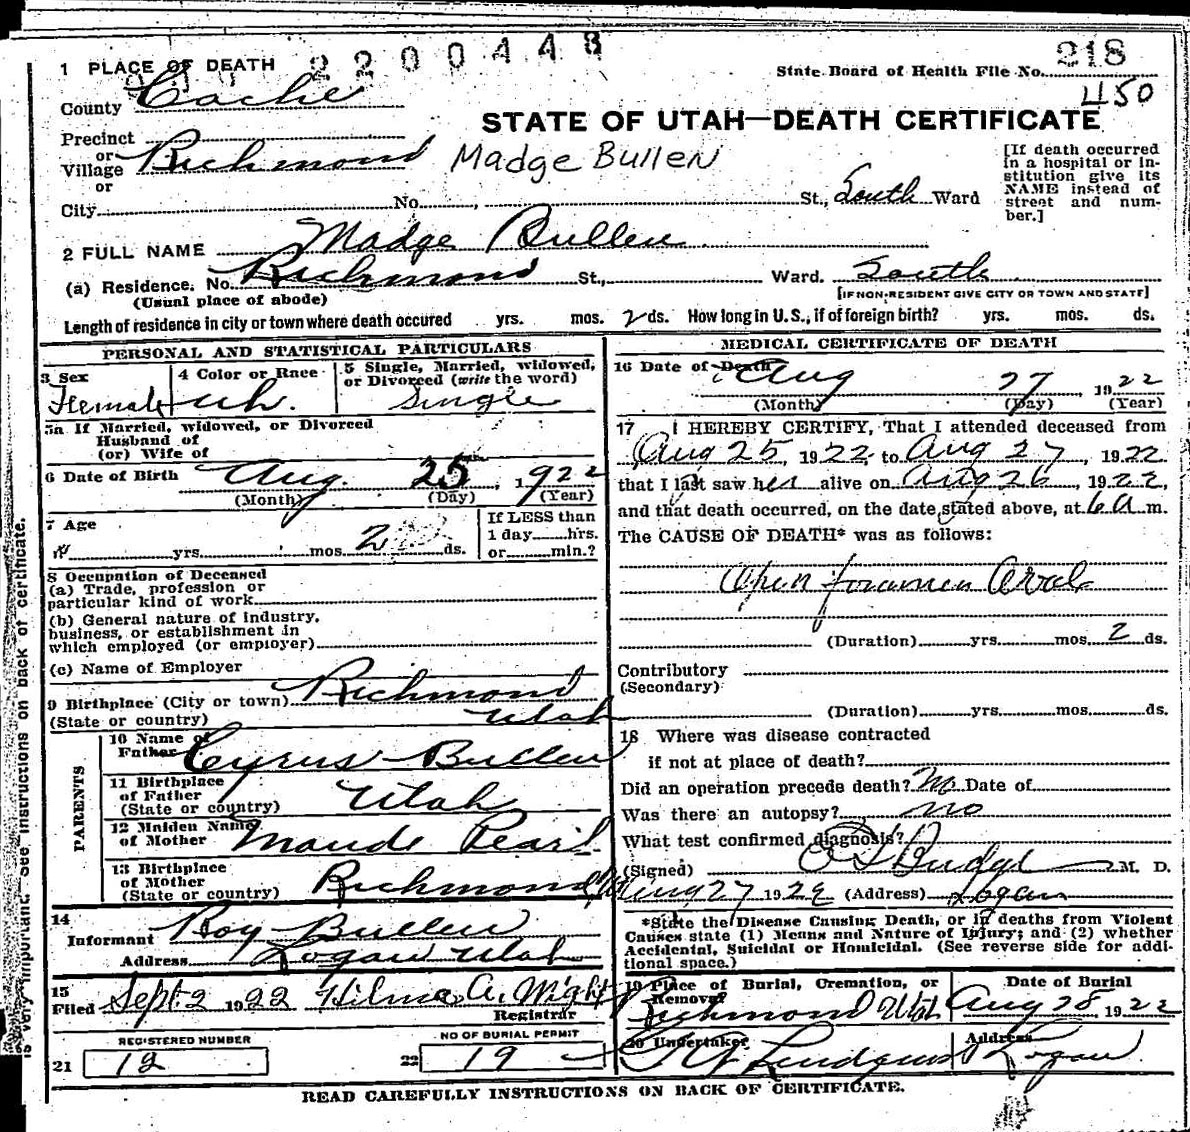 2200448
218
1 PLACE OF DEATH
State Board of Health File No.
450
County Cache
STATE OF UTAH—DEATH CERTIFICATE
Precinct
or
Village Richmond
Madge Bullen
[If death occurred in a hospital or institution give its NAME instead of street and number.]
or
City No. St., South Ward
2 FULL NAME Madge Bullen
(a) Residence. No. Richmond St., Ward. South
(Usual place of abode)
[IF NON-RESIDENT GIVE CITY OR TOWN AND STATE]
Length of residence in city or town where death occured yrs. mos. 2 ds. How long in U.S., if of foreign birth? yrs. mos. ds.
PERSONAL AND STATISTICAL PARTICULARS
3 Sex
Female
4 Color or Race
wh.
5 Single, Married, widowed, or Divorced (write the word)
Single
5a If Married, widowed, or Divorced
Husband of
(or) Wife of
6 Date of Birth Aug. 25, 1922
(Month) (Day) (Year)
7 Age
yrs. mos. 2 ds.
If LESS than
1 day hrs.
or min.?
8 Occupation of Deceased
(a) Trade, profession or
particular kind of work
(b) General nature of industry,
business, or establishment in
which employed (or employer)
(c) Name of Employer
9 Birthplace (City or town) Richmond
(State or country) Utah
PARENTS
10 Name of
Father Cyrus Bullen
11 Birthplace
of Father
(State or country) Utah
12 Maiden Name
of Mother Maude Pearl
13 Birthplace
of Mother
(State or country) Richmond
14
Informant Roy Bullen
Address Logan Utah
15
Filed Sept 2 1922 Hilma A. Wight
Registrar
REGISTERED NUMBER
21 12
NO OF BURIAL PERMIT
22 19
MEDICAL CERTIFICATE OF DEATH
16 Date of Death Aug 27 1922
(Month) (Day) (Year)
17 I HEREBY CERTIFY, That I attended deceased from
Aug 25, 1922 to Aug 27, 1922
that I last saw her alive on Aug 26, 1922,
and that death occurred, on the date stated above, at 6 a m.
The CAUSE OF DEATH* was as follows:
Open foramen Ovale
(Duration) yrs. mos. 2 ds.
Contributory
(Secondary)
(Duration) yrs. mos. ds.
18 Where was disease contracted
if not at place of death?
Did an operation precede death? No Date of
Was there an autopsy? no
What test confirmed diagnosis?
(Signed) Budge M. D.
Aug 27 1922 (Address) Logan
*State the Disease Causing Death, or in deaths from Violent
Causes state (1) Means and Nature of Injury; and (2) whether
Accidental, Suicidal or Homicidal. (See reverse side for addi-
tional space.)
19 Place of Burial, Cremation, or
Removal
Richmond Utah
Date of Burial
Aug 28, 1922
20 Undertaker
Address
Logan
READ CAREFULLY INSTRUCTIONS ON BACK OF CERTIFICATE.
is very important. See instructions on back of certificate.